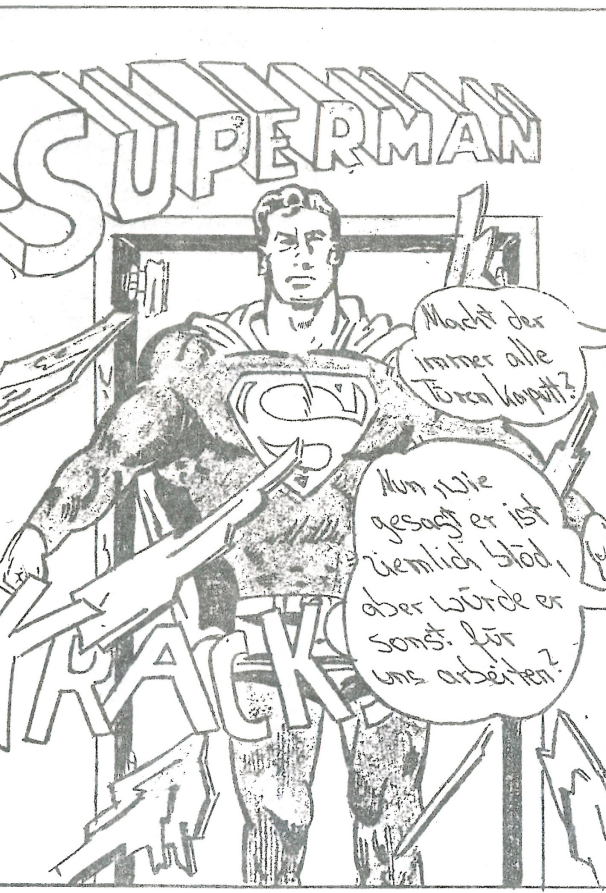 SUPERMAN
Macht der
immer alle
Türen kaputt?
Nun, wie
gesagt er ist
ziemlich blöd,
aber würde er
sonst für
uns arbeiten?
KRACKS